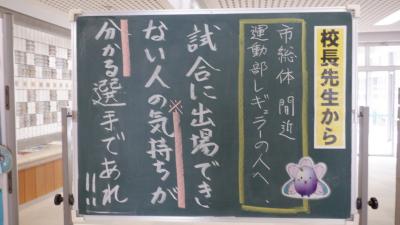 校長先生から
市総体間近
運動部レギュラーの人へ、
試合に出場でき
ない人の※気持ちが
分かる選手であれ!!